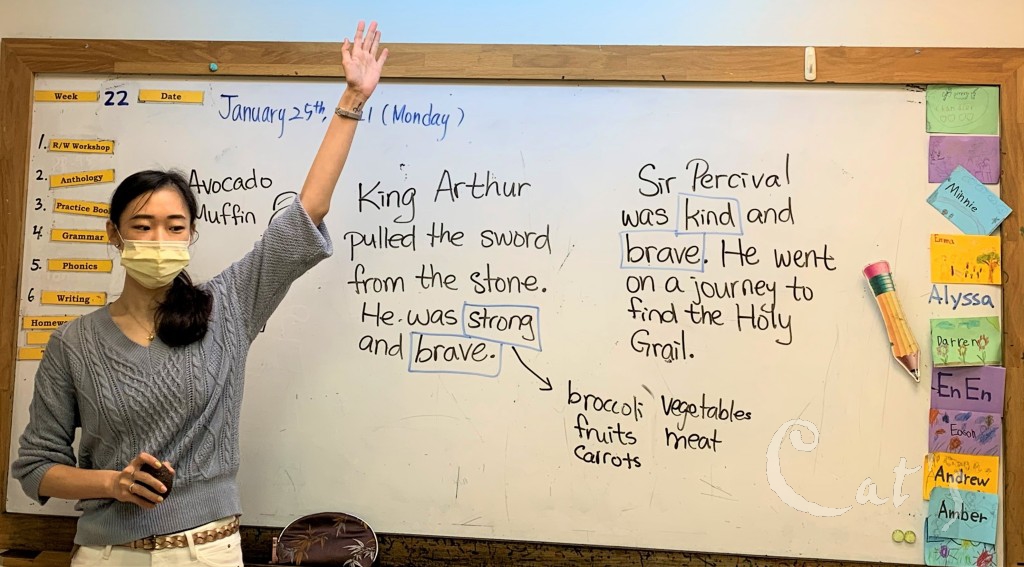 Week 22 Date January 25th, 21 (Monday)
1. R/W Workshop
2. Anthology
3. Practice Book
4. Grammar
5. Phonics
6 Writing
Homework
Avocado
Muffin
King Arthur
pulled the sword
from the stone.
He was strong
and brave.
Sir Percival
was kind and
brave. He went
on a journey to
find the Holy
Grail.
broccoli vegetables
fruits meat
carrots
Minnie
Emma
Alyssa
Darren
En En
Edison
Andrew
Amber
Cat